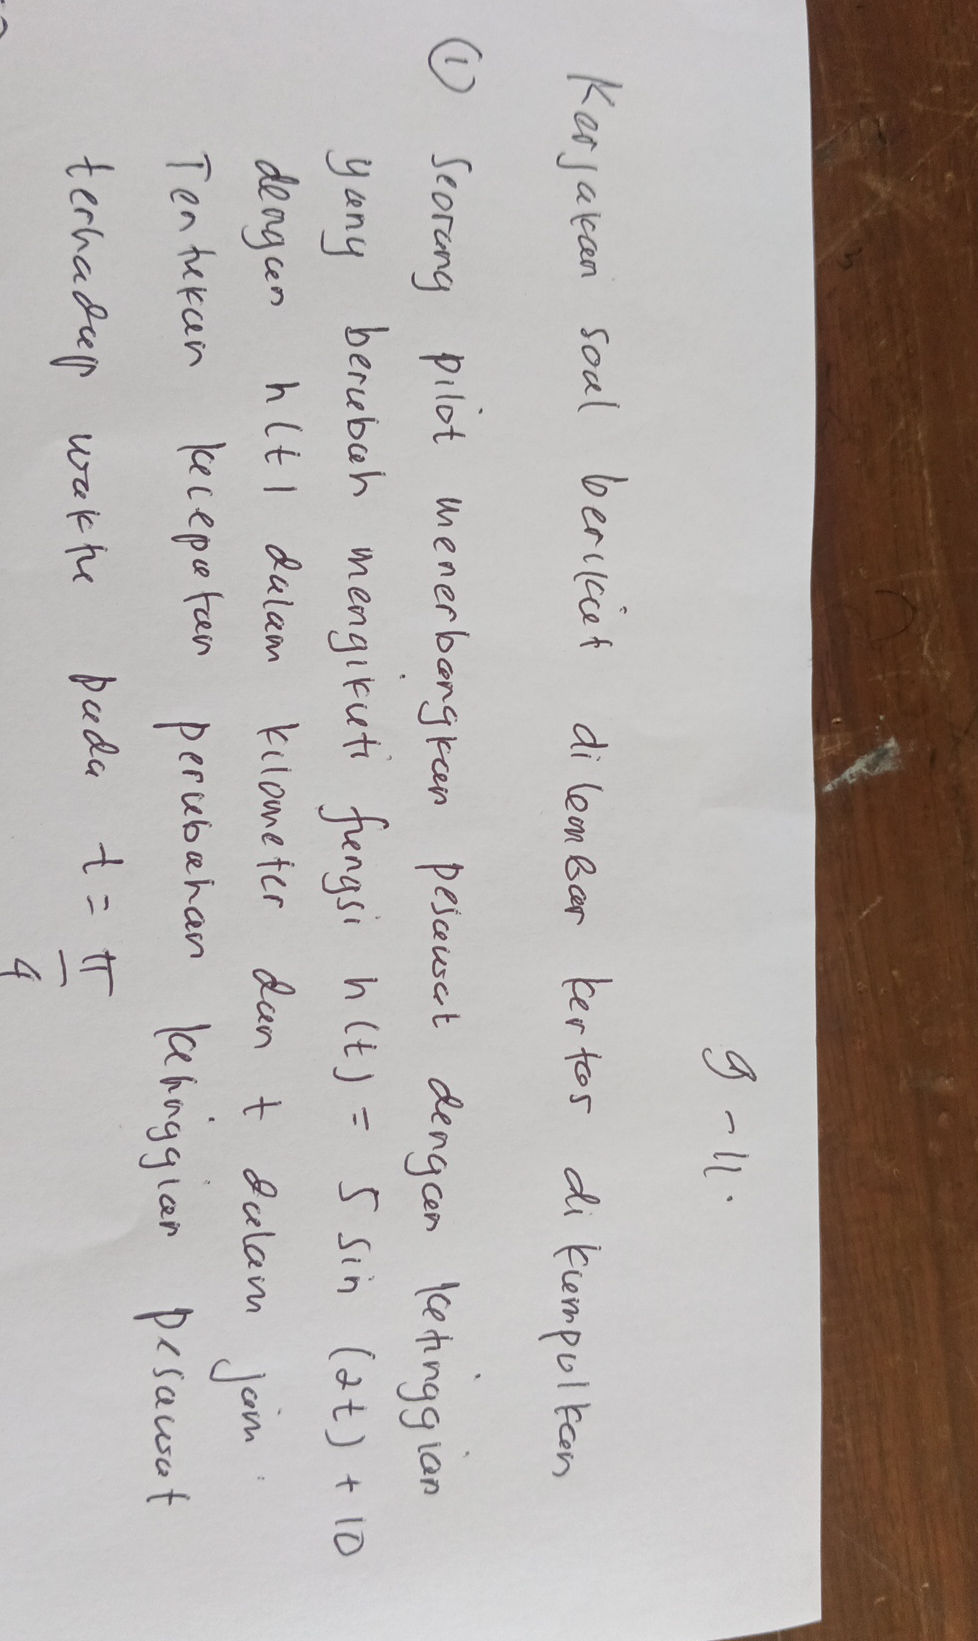 9 - 11.
Kerjakan soal berikut dilembar kertas dikumpulkan
① Seorang pilot menerbangkan pesawat dengan ketinggian
yang berubah mengikuti fungsi h(t) = 5 sin (2t) + 10
dengan h(t) dalam kilometer dan t dalam jam.
Tentukan kecepatan perubahan ketinggian pesawat
terhadap waktu pada t = π/4